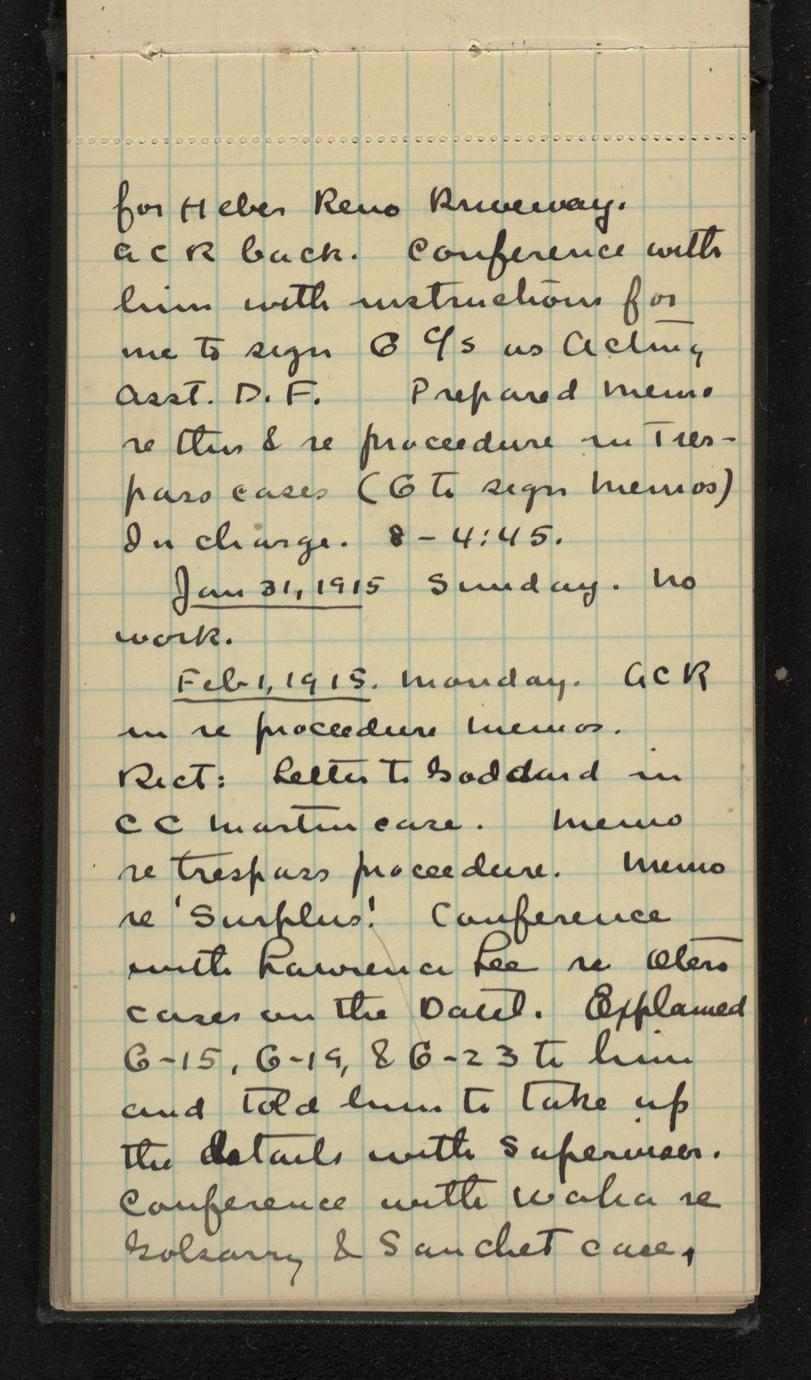 for Heber Reno Driveway.
A C R back. Conference with
him with instructions for
me to sign G C/s as Acting
Asst. D. F. Prepared memo
re this & re proceedure in Tres-
pass cases (G to sign memos)
In charge. 8 - 4:45.
Jan 31, 1915 Sunday. No
work.
Feb 1, 1915. Monday. ACR
in re proceedure memos.
Dict: Letter to Goddard in
C C Martin case. Memo
re trespass proceedure. Memo
re 'Surplus'. Conference
with Lawrence Lee re
cases on the Datil. Explained
G-15, G-19, & G-23 to him
and told him to take up
the details with Supervisor.
Conference with Waha re
& Sanchet case,